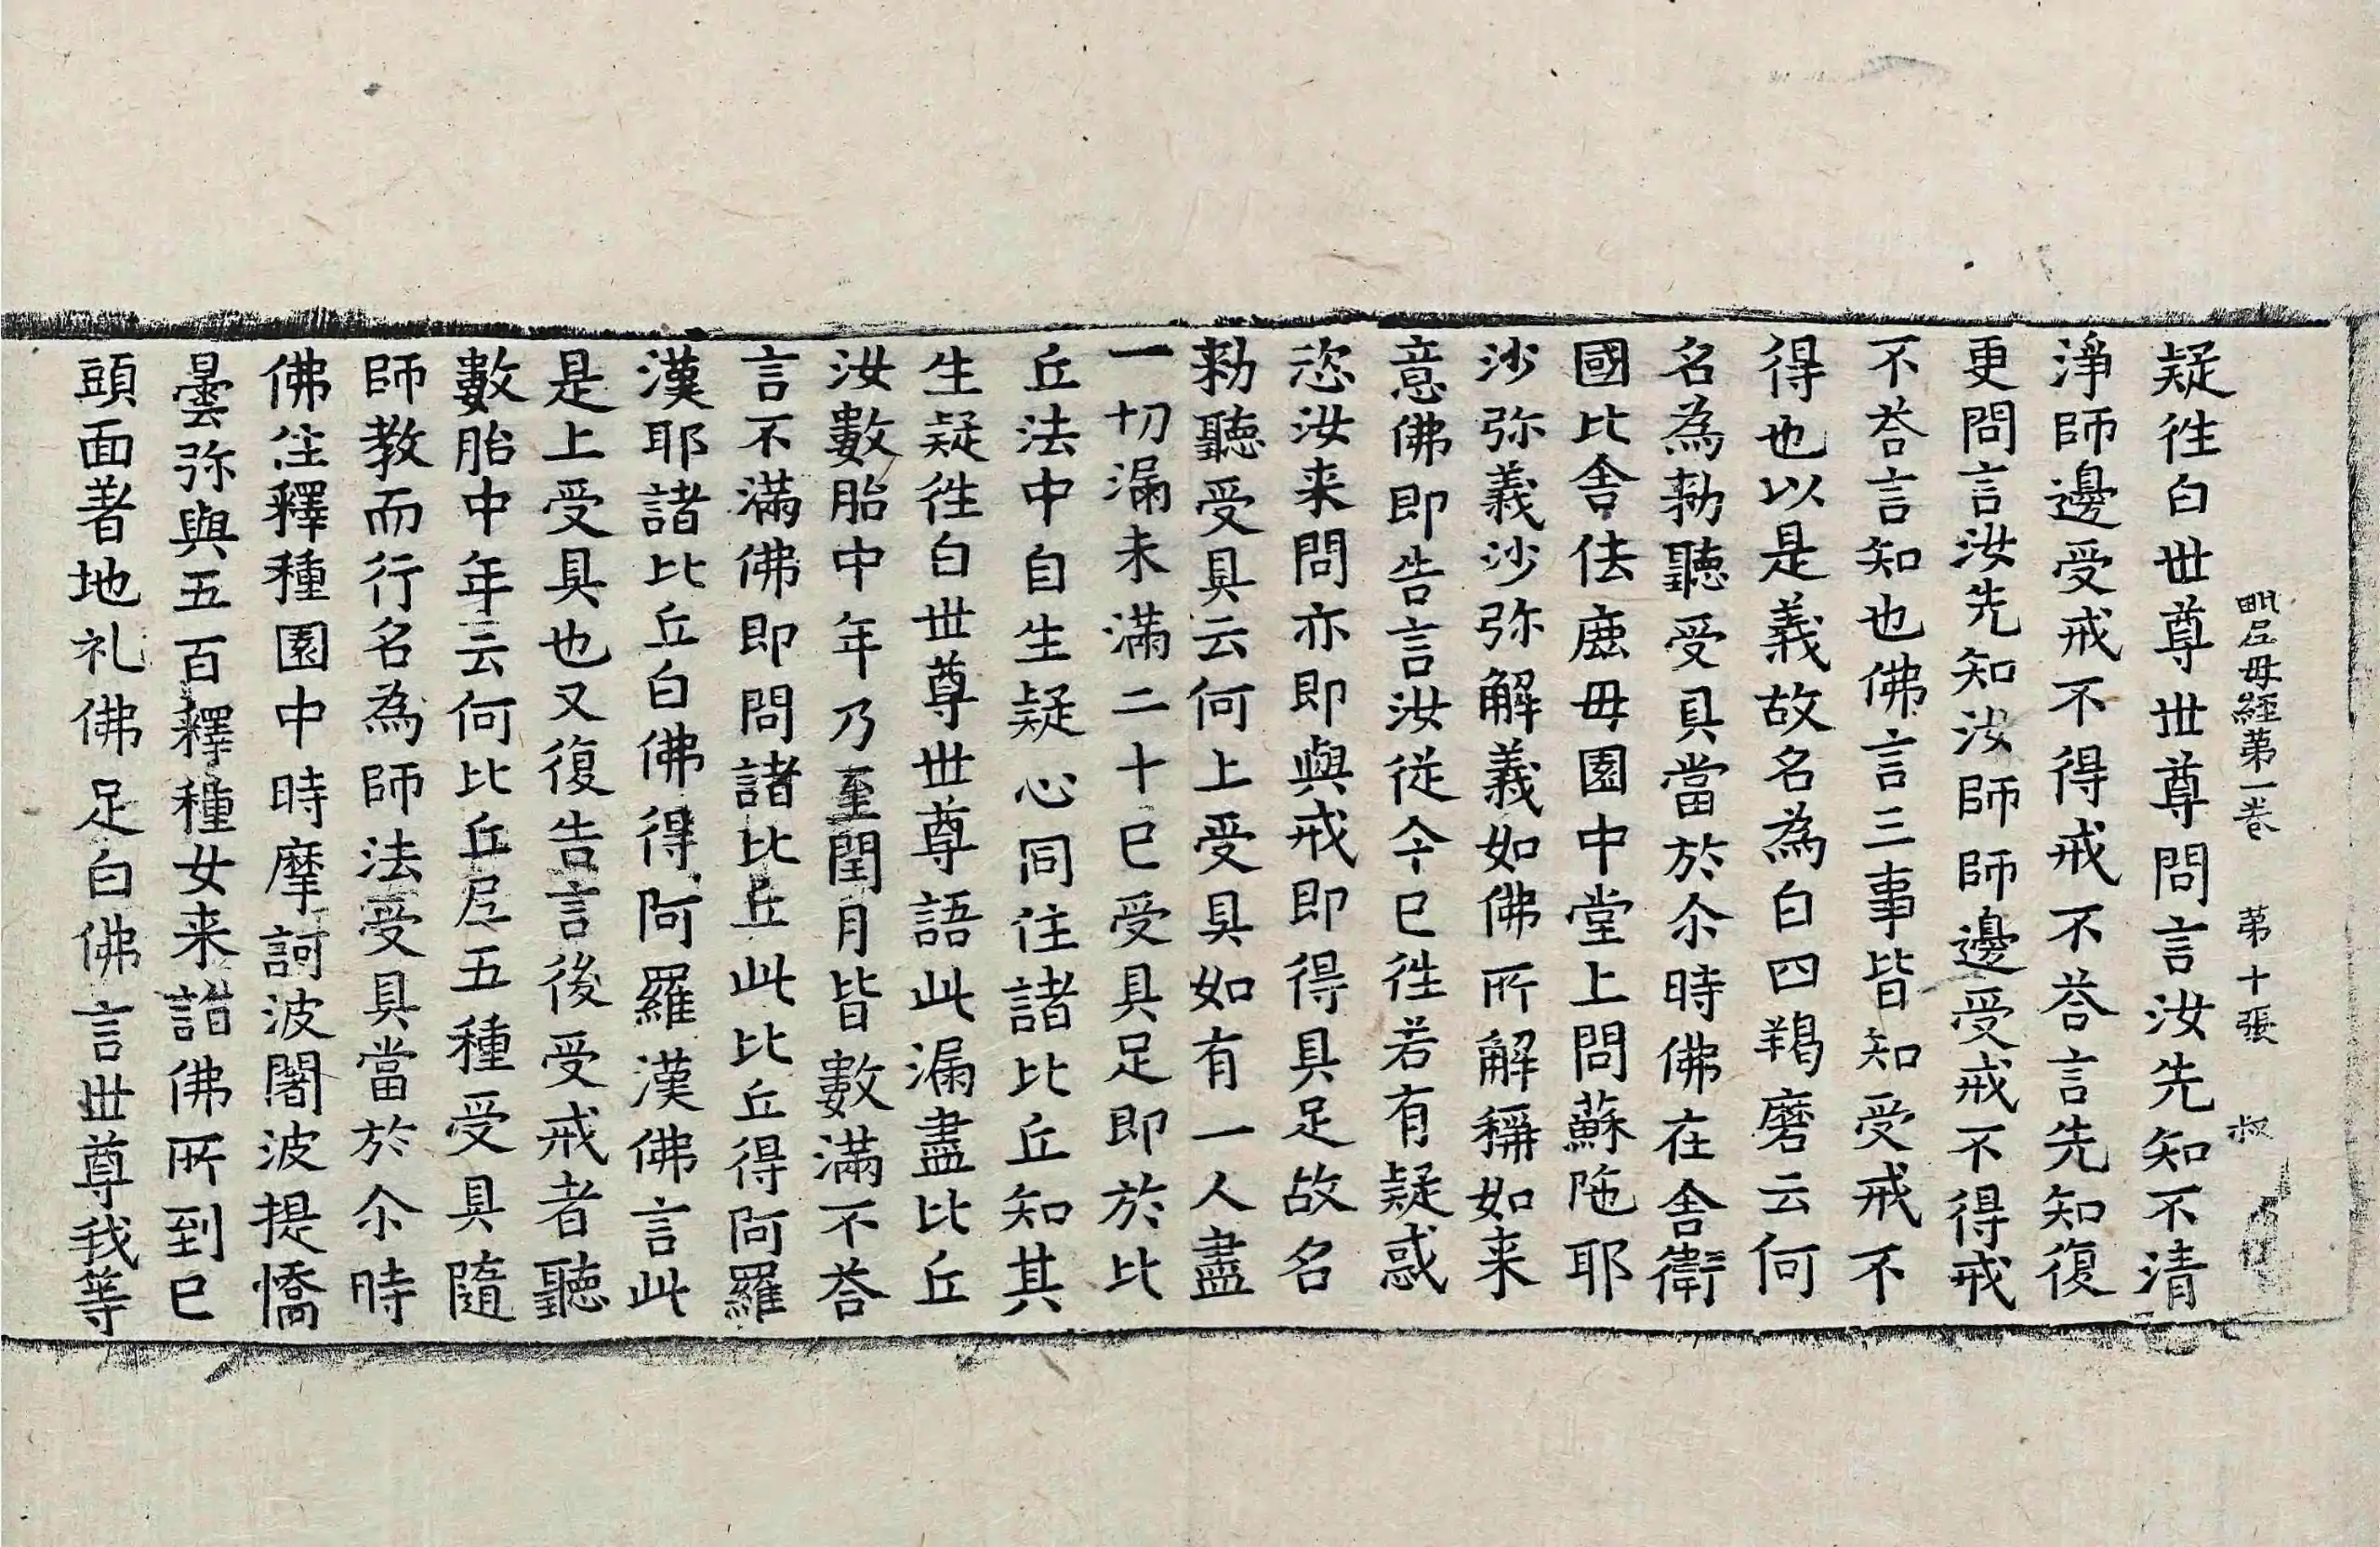 毗尼母經第一卷 第十張 叔
疑徃白世尊世尊問言汝先知不清
淨師邊受戒不得戒不荅言先知復
更問言汝先知汝師師邊受戒不得戒
不荅言知也佛言三事皆知受戒不
得也以是義故名為白四羯磨云何
名為勑聽受具當於尒時佛在舍衛
國比舍佉鹿母園中堂上問蘇陁耶
沙弥義沙弥解義如佛所解稱如来
意佛即告言汝從今已徃若有疑惑
恣汝来問亦即與戒即得具足故名
勑聽受具云何上受具如有一人盡
一切漏未滿二十已受具足即於比
丘法中自生疑心同住諸比丘知其
生疑徃白世尊世尊語此漏盡比丘
汝數胎中年乃至閏月皆數滿不荅
言不滿佛即問諸比丘此比丘得阿羅
漢耶諸比丘白佛得阿羅漢佛言此
是上受具也又復告言後受戒者聽
數胎中年云何比丘尼五種受具隨
師教而行名為師法受具當於尒時
佛住釋種園中時摩訶波闍波提憍
曇弥與五百釋種女来詣佛所到已
頭面著地礼佛足白佛言世尊我等